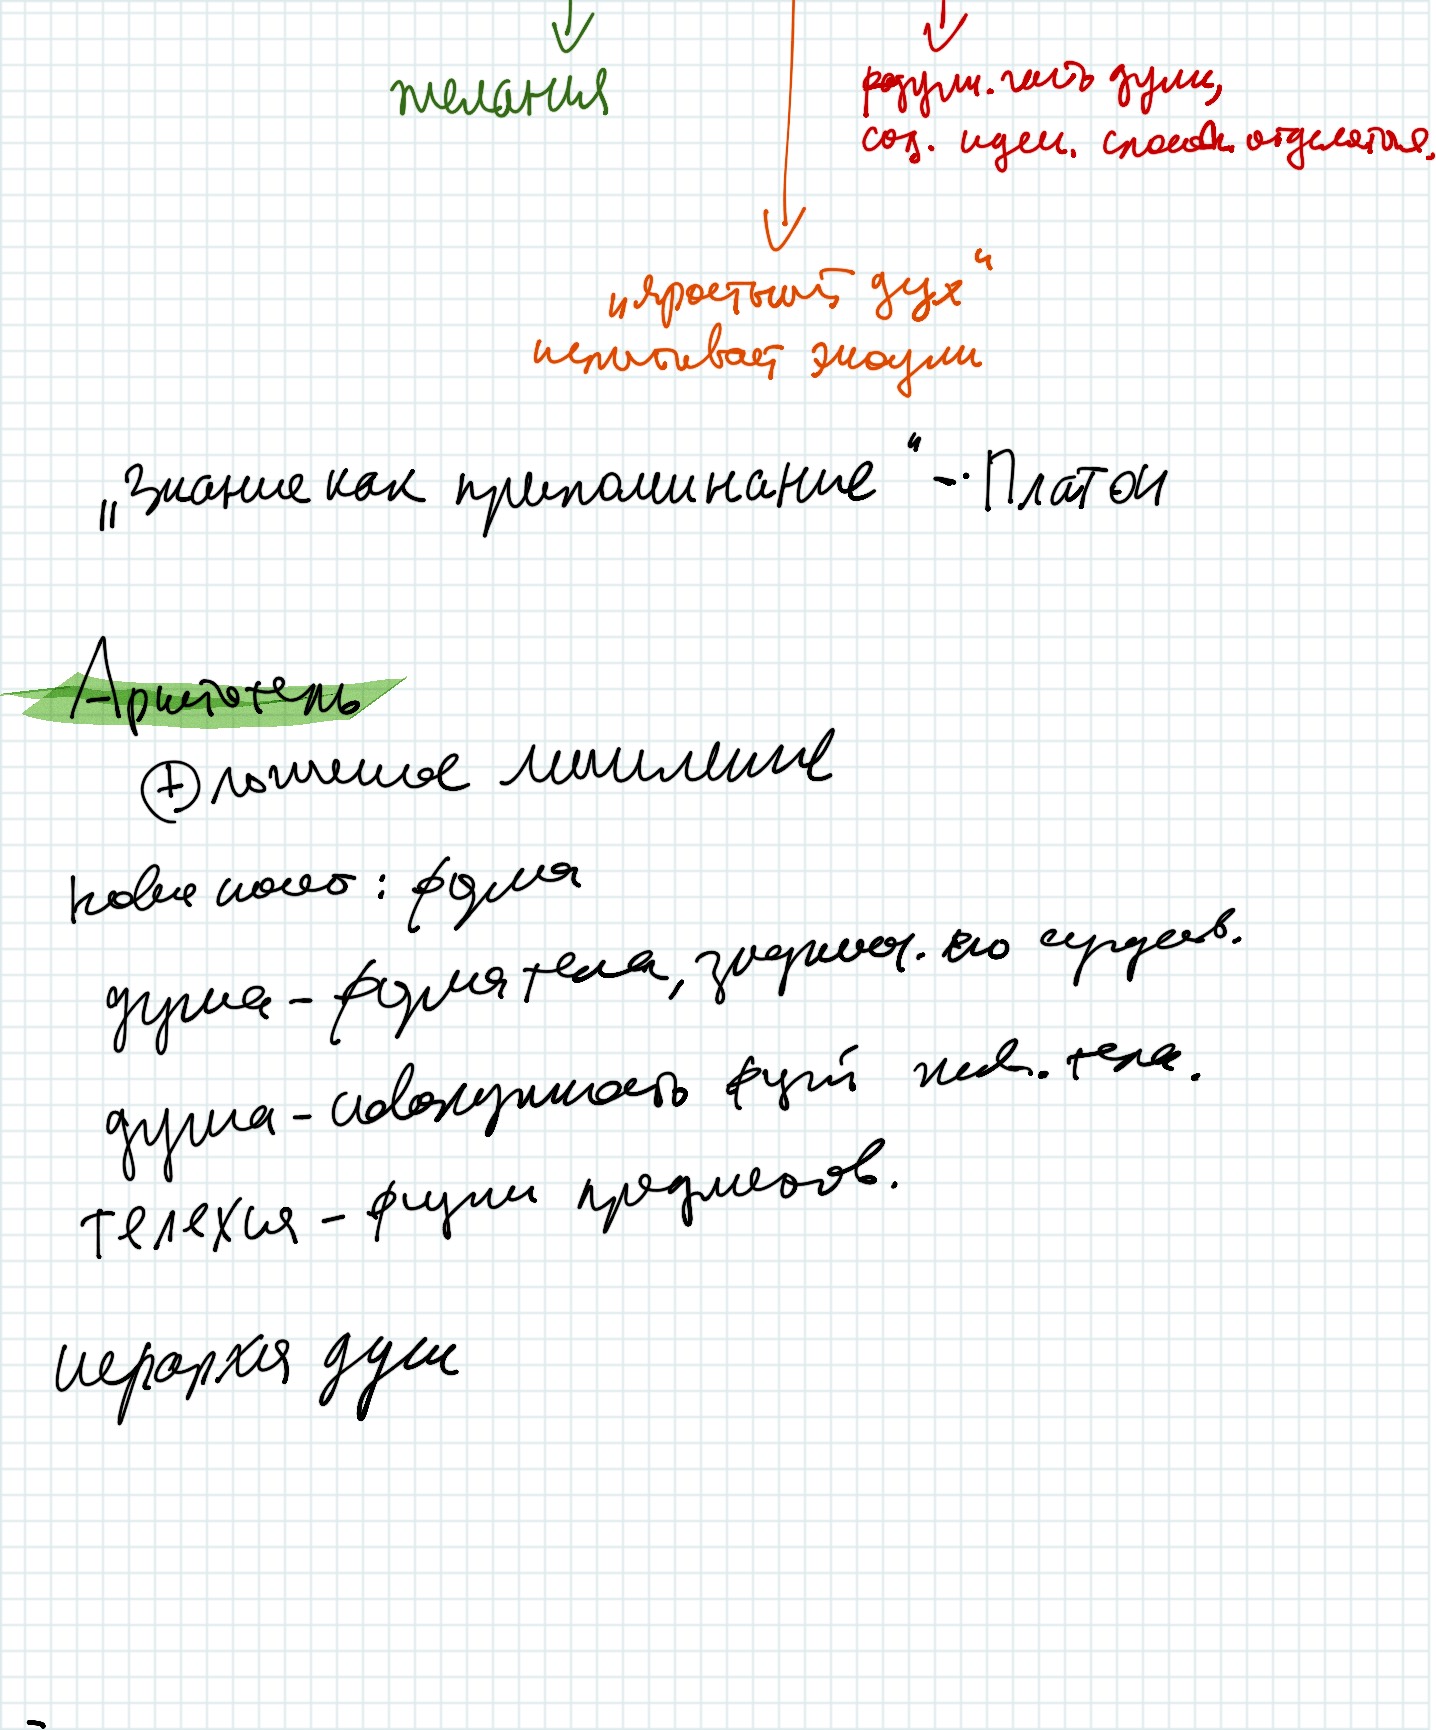 желания
разумн. часть души,
соз. идеи. способн. отделяться.
„яростный дух“
испытывает эмоции
„Знание как припоминание“ - Платон
Аристотель
+ логическое мышление
новое понят: форма
душа - форма тела, его существ.
душа - совокупность фций жив. тела.
телехия - фции предметов.
иерархия душ